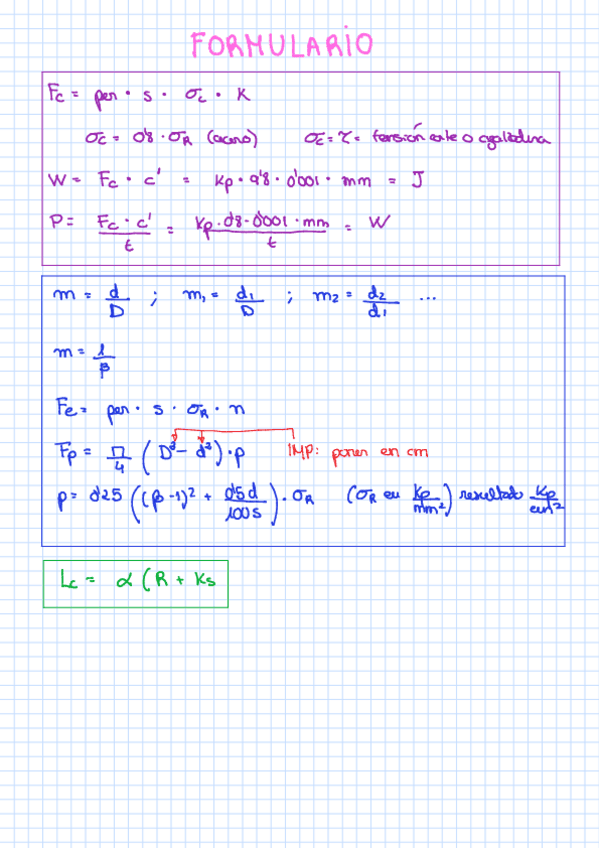 FORMULARIO
Fc = per · s · σc · K
σc = 0'8 · σR (acero) σc = τ = tensión corte o cizalladura
W = Fc · c' = Kp · 9'8 · 0'001 · mm = J
P = Fc · c' / t = Kp · 9'8 · 0'001 · mm / t = W
m = d / D ; m1 = d1 / D ; m2 = d2 / d1 ...
m = 1 / β
Fe = per · s · σR · n
Fp = π / 4 (D² - d²) · p IMP: poner en cm
p = 0'25 ((β - 1)² + 0'5d / 100s) · σR (σR en Kp / mm²) resultado Kp / cm²
Lc = α (R + Ks